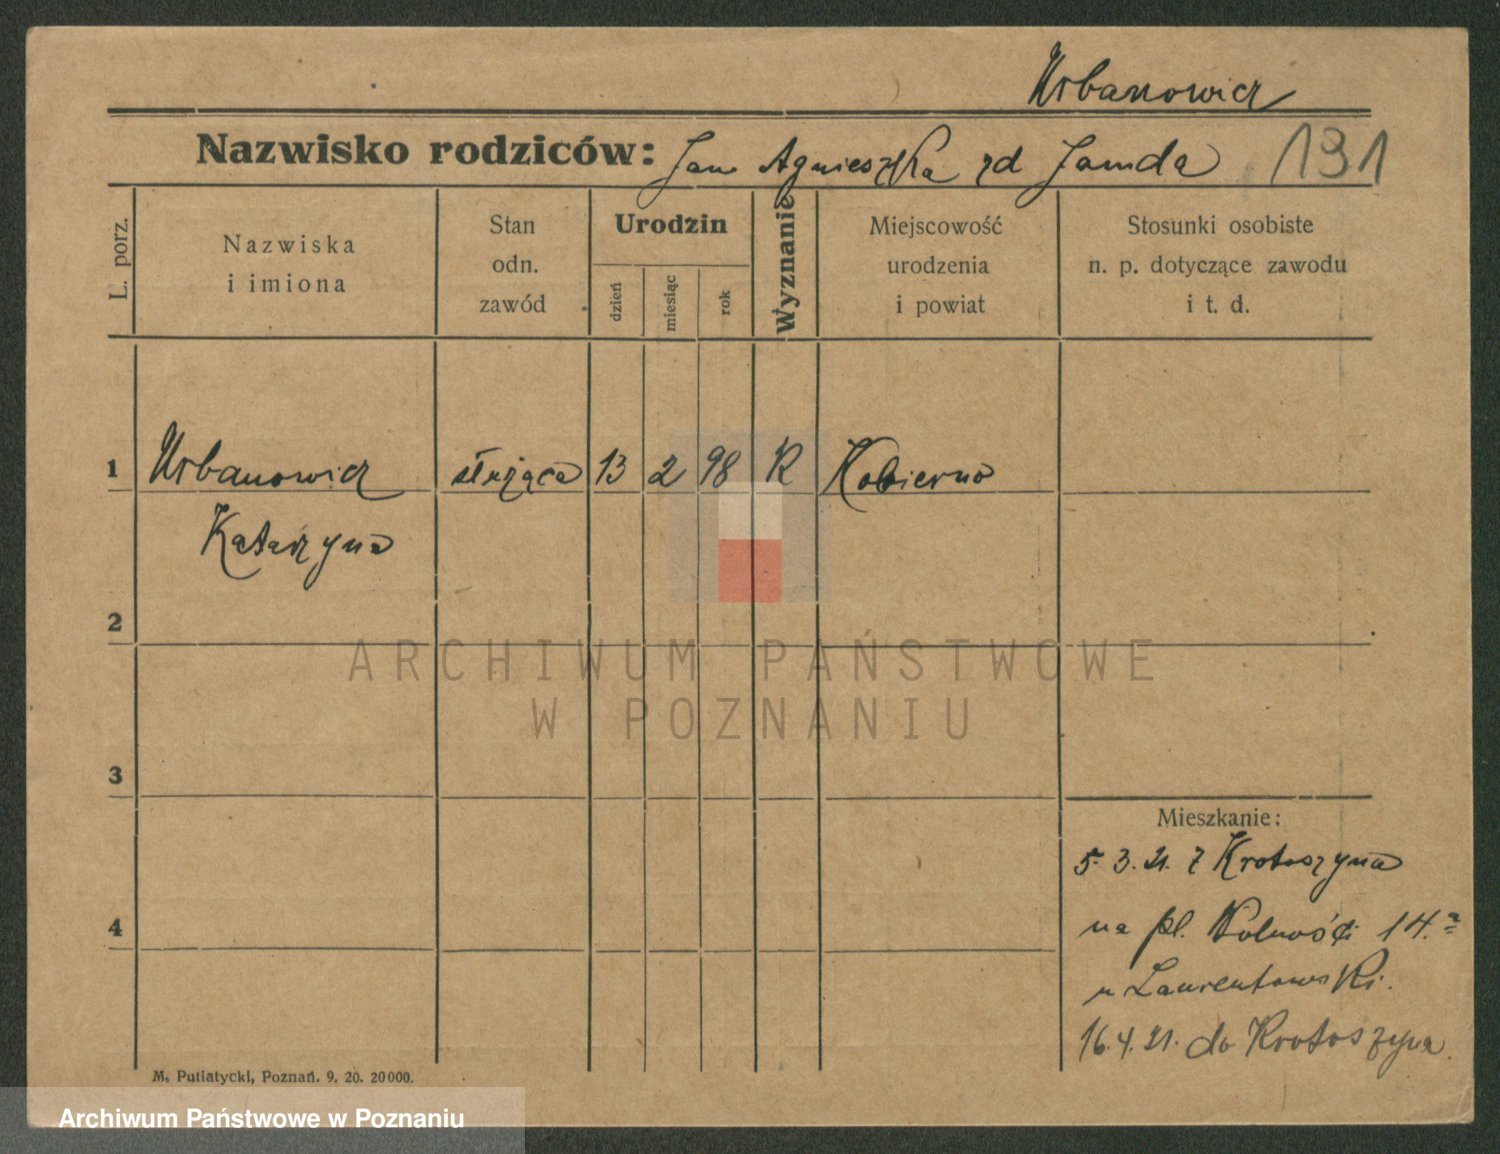 Urbanowicz
Nazwisko rodziców: Jan Agnieszka zd Jamda
191
L. porz.
Nazwiska
i imiona
Stan
odn.
zawód
Urodzin
dzień
miesiąc
rok
Wyznanie
Miejscowość
urodzenia
i powiat
Stosunki osobiste
n. p. dotyczące zawodu
i t. d.
1 Urbanowicz służąca 13 2 98 R Kobierno
Katarzyna
2
ARCHIWUM PAŃSTWOWE
W POZNANIU
3
Mieszkanie:
5. 3. 21. z Krotoszyna
4
na pl. Wolności 14.a
u Laurentowski.
16.4.21. do Krotoszyna.
M. Putiatycki, Poznań. 9. 20. 20000.
Archiwum Państwowe w Poznaniu